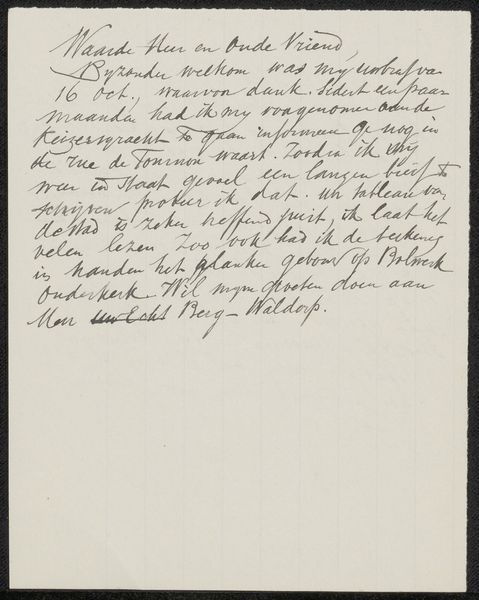 Waarde Heer en Oude Vriend,
Byzonder welkom was my uw brief van
16 Oct., waarvoor dank. Sedert een paar
maanden had ik my voorgenomen aan de
Keizersgracht te gaan informeren of U nog in
de rue de Tournon waart. Zoodra ik my
weer in staat gevoel een langen brief te
schryven, probeer ik dat. Uw tableau van
de Stad is zeker treffend juist, ik laat het
velen lezen Zoo ook had ik de tekening
in handen het planken gebouw op Bolwerk
Onderkerk. Wil myn groeten doen aan
Mevr Berg - Waldorp.